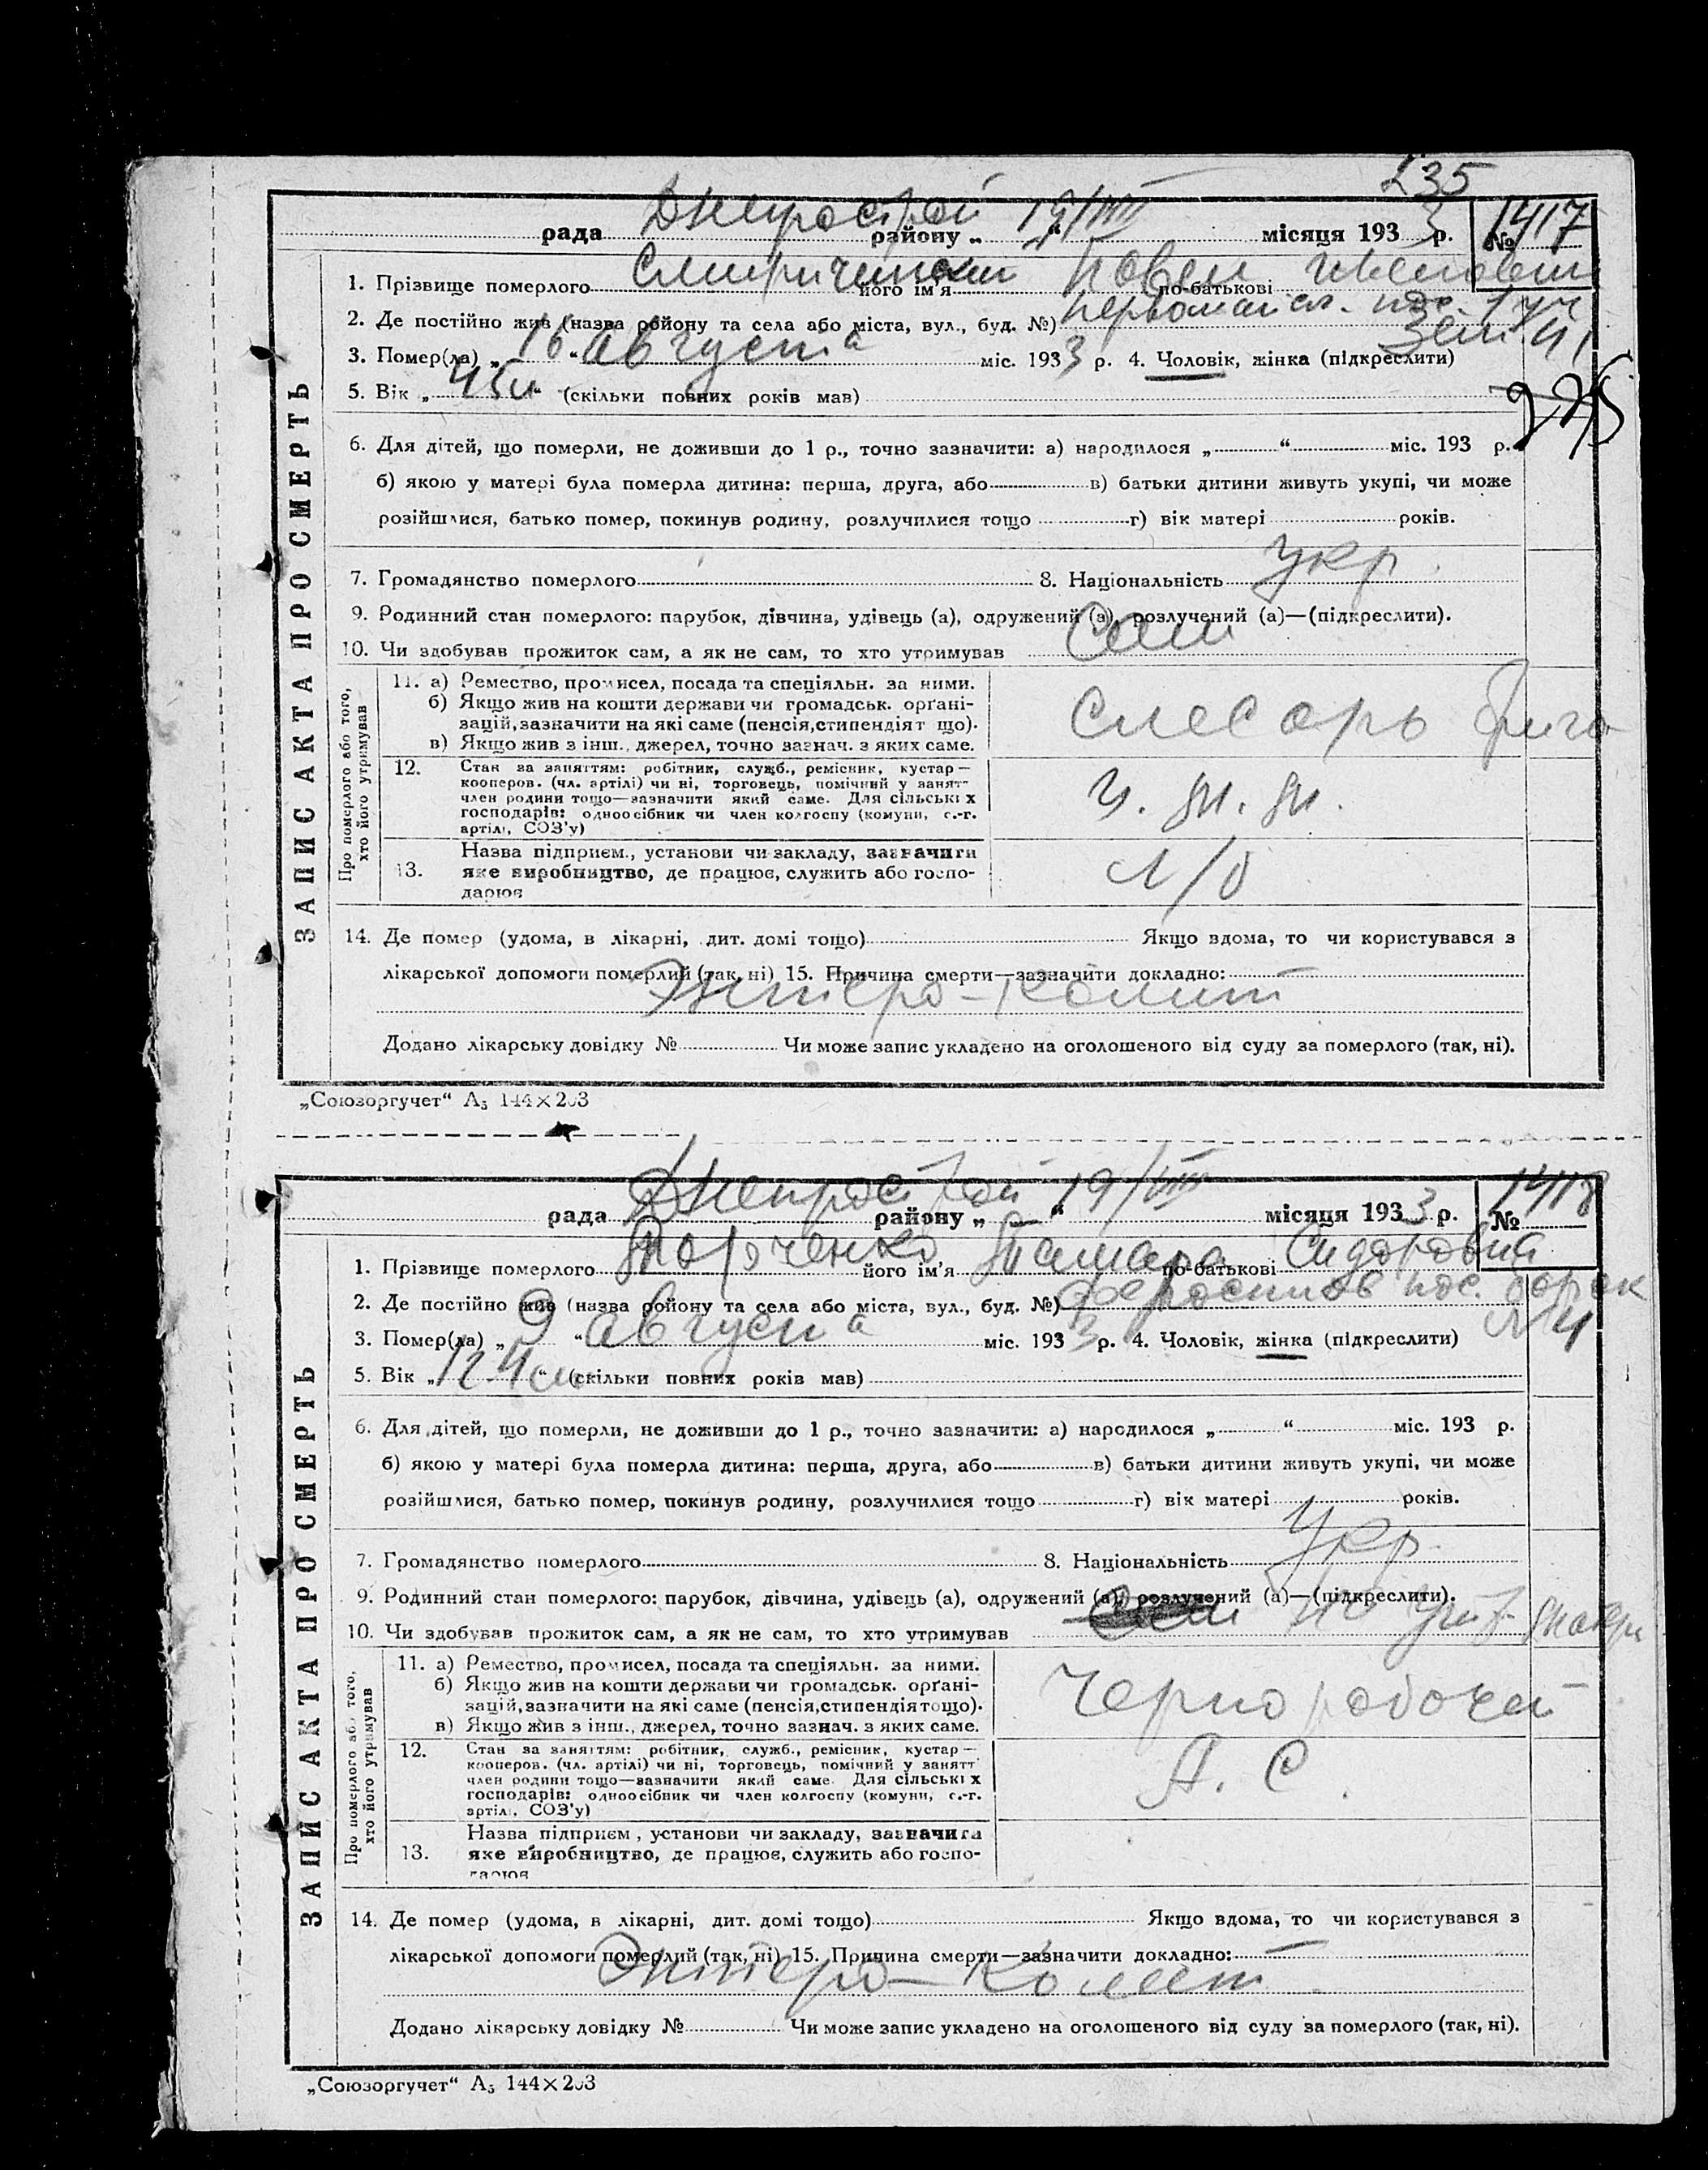 235
Днепрострой 19/VIII
рада району „ “ місяця 1933 р. № 1417
1. Прізвище померлого його ім'я Павел по-батькові
2. Де постійно жив (назва району та села або міста, вул., буд. №) первомайск. пос. 1 уч
зем. 4
3. Помер(ла) „16“ августа міс. 1933 р. 4. Чоловік, жінка (підкреслити)
5. Вік „45 л“ (скільки повних років мав)
6. Для дітей, що померли, не доживши до 1 р., точно зазначити: а) народилося „ “ міс. 193 р.
б) якою у матері була померла дитина: перша, друга, або в) батьки дитини живуть укупі, чи може
розійшлися, батько помер, покинув родину, розлучилися тощо г) вік матері років.
7. Громадянство померлого 8. Національність укр.
9. Родинний стан померлого: парубок, дівчина, удівець (а), одружений (а), розлучений (а)—(підкреслити).
10. Чи здобував прожиток сам, а як не сам, то хто утримував Сам
ЗАПИС АКТА ПРО СМЕРТЬ
Про померлого або того,
хто його утримував
11. а) Ремество, промисел, посада та спеціяльн. за ними.
б) Якщо жив на кошти держави чи громадськ. орґані-
зацій, зазначити на які саме (пенсія, стипендія т що).
в) Якщо жив з інш., джерел, точно зазнач. з яких саме.
слесарь
12. Стан за заняттям: робітник, служб., ремісник, кустар—
кооперов. (чл. артілі) чи ні, торговець, помічний у занят-
член родини тощо—зазначити який саме. Для сільських
господарів: одноосібник чи член колгоспу (комуни, с.-г.
артілі, СОЗ'у)
13. Назва підприєм., установи чи закладу, зазначити
яке виробництво, де працює, служить або госпо-
дарює
14. Де помер (удома, в лікарні, дит. домі тощо) Якщо вдома, то чи користувався з
лікарської допомоги померлий (так, ні) 15. Причина смерти—зазначити докладно:
Энтеро-колит
Додано лікарську довідку № Чи може запис укладено на оголошеного від суду за померлого (так, ні).
„Союзоргучет“ А5 144×203
Днепрострой 19/VIII
рада району „ “ місяця 1933 р. № 1418
1. Прізвище померлого його ім'я Тамара по-батькові Сидоровна
2. Де постійно жив (назва району та села або міста, вул., буд. №) пос. барак
№ 4
3. Помер(ла) „9“ августа міс. 1933 р. 4. Чоловік, жінка (підкреслити)
5. Вік „ “ (скільки повних років мав)
6. Для дітей, що померли, не доживши до 1 р., точно зазначити: а) народилося „ “ міс. 193 р.
б) якою у матері була померла дитина: перша, друга, або в) батьки дитини живуть укупі, чи може
розійшлися, батько помер, покинув родину, розлучилися тощо г) вік матері років.
7. Громадянство померлого 8. Національність Укр.
9. Родинний стан померлого: парубок, дівчина, удівець (а), одружений (а), розлучений (а)—(підкреслити).
10. Чи здобував прожиток сам, а як не сам, то хто утримував
ЗАПИС АКТА ПРО СМЕРТЬ
Про померлого або того,
хто його утримував
11. а) Ремество, промисел, посада та спеціяльн. за ними.
б) Якщо жив на кошти держави чи громадськ. орґані-
зацій, зазначити на які саме (пенсія, стипендія тощо).
в) Якщо жив з інш., джерел, точно зазнач. з яких саме.
Чернорабочей
12. Стан за заняттям: робітник, служб., ремісник, кустар—
кооперов. (чл. артілі) чи ні, торговець, помічний у занятт
член родини тощо—зазначити який саме. Для сільських
господарів: одноосібник чи член колгоспу (комуни, с.-г.
артілі, СОЗ'у)
13. Назва підприєм., установи чи закладу, зазначити
яке виробництво, де працює, служить або госпо-
дарює
14. Де помер (удома, в лікарні, дит. домі тощо) Якщо вдома, то чи користувався з
лікарської допомоги померлий (так, ні) 15. Причина смерти—зазначити докладно:
Энтеро-колит
Додано лікарську довідку № Чи може запис укладено на оголошеного від суду за померлого (так, ні).
„Союзоргучет“ А5 144×203